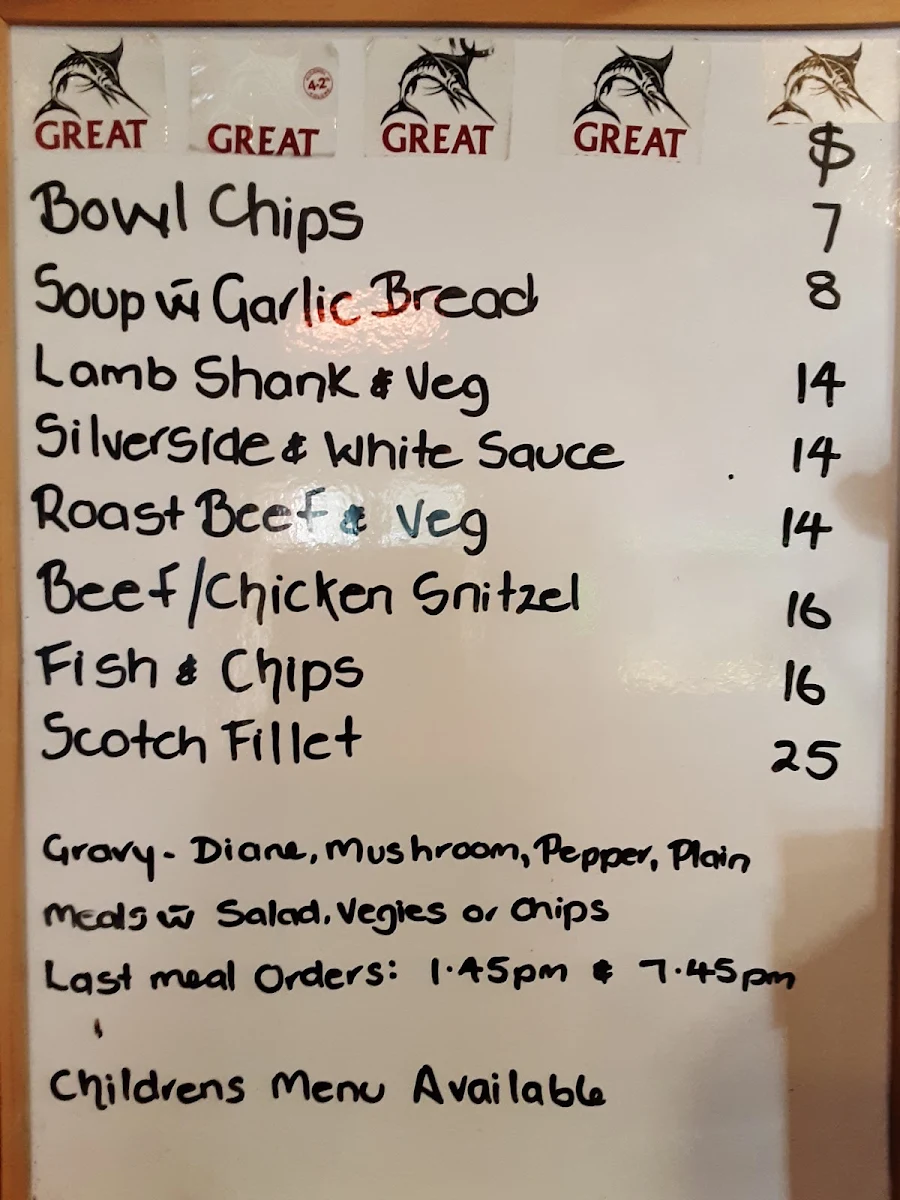 GREAT GREAT GREAT GREAT
4.2%
$
Bowl Chips 7
Soup w̄ Garlic Bread 8
Lamb Shank & Veg 14
Silverside & White Sauce 14
Roast Beef & Veg 14
Beef/Chicken Snitzel 16
Fish & Chips 16
Scotch Fillet 25
Gravy - Diane, Mushroom, Pepper, Plain
Meals w̄ Salad, Vegies or Chips
Last meal Orders: 1.45pm & 7.45pm
Childrens Menu Available